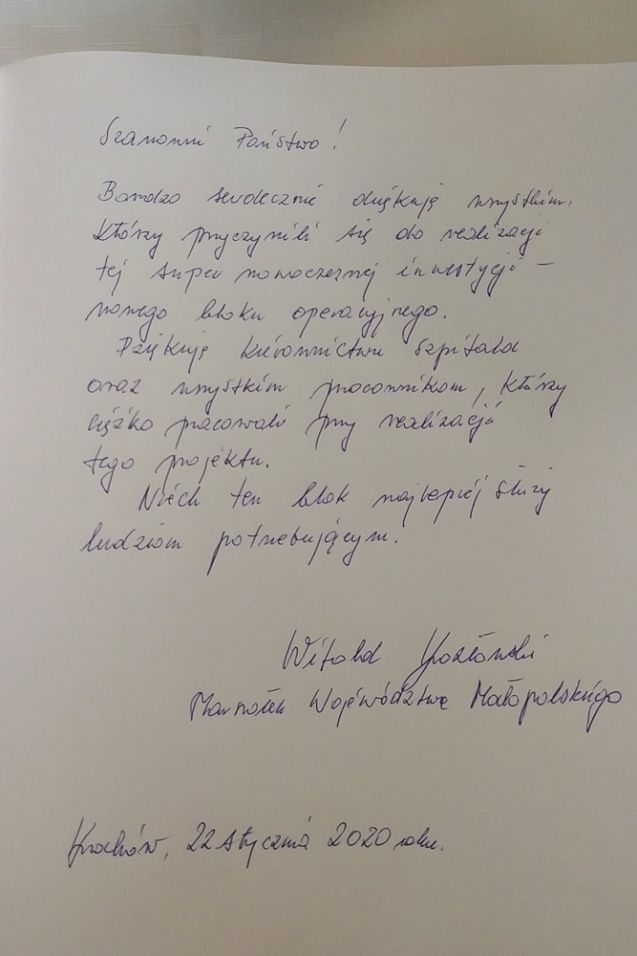 Szanowni Państwo!
Bardzo serdecznie dziękuję wszystkim,
którzy przyczynili się do realizacji
tej super nowoczesnej inwestycji –
nowego bloku operacyjnego.
Dziękuję kierownictwu szpitala
oraz wszystkim pracownikom, którzy
ciężko pracowali przy realizacji
tego projektu.
Niech ten blok najlepiej służy
ludziom potrzebującym.
Witold Kozłowski
Marszałek Województwa Małopolskiego
Kraków, 22 stycznia 2020 roku.